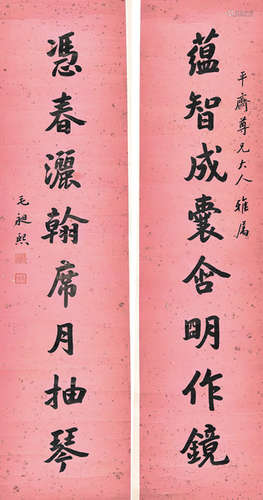 平齋尊兄大人雅属
蘊智成囊含明作鏡
憑春灑翰席月抽琴
毛昶熙